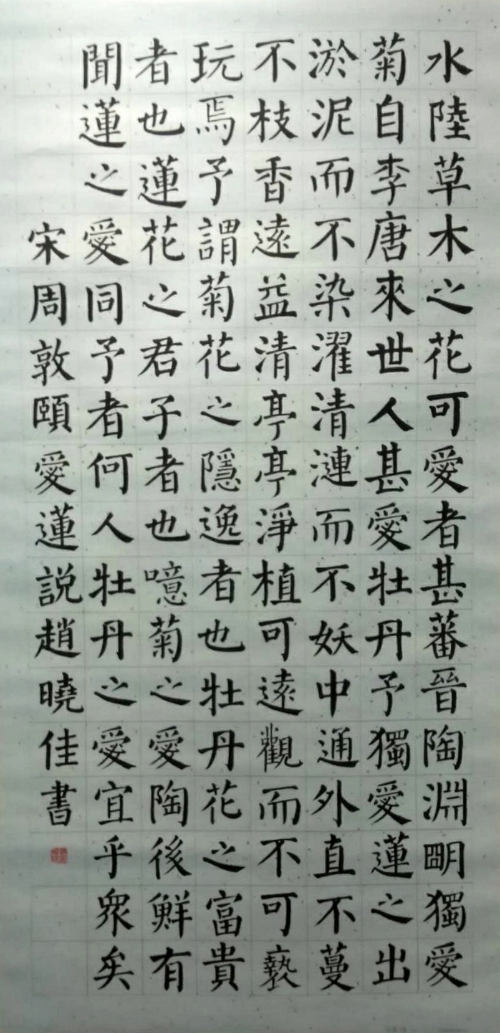 水陸草木之花可愛者甚蕃晉陶淵明獨愛
菊自李唐來世人甚愛牡丹予獨愛蓮之出
淤泥而不染濯清漣而不妖中通外直不蔓
不枝香遠益清亭亭淨植可遠觀而不可褻
玩焉予謂菊花之隱逸者也牡丹花之富貴
者也蓮花之君子者也噫菊之愛陶後鮮有
聞蓮之愛同予者何人牡丹之愛宜乎眾矣
宋周敦頤愛蓮説趙曉佳書